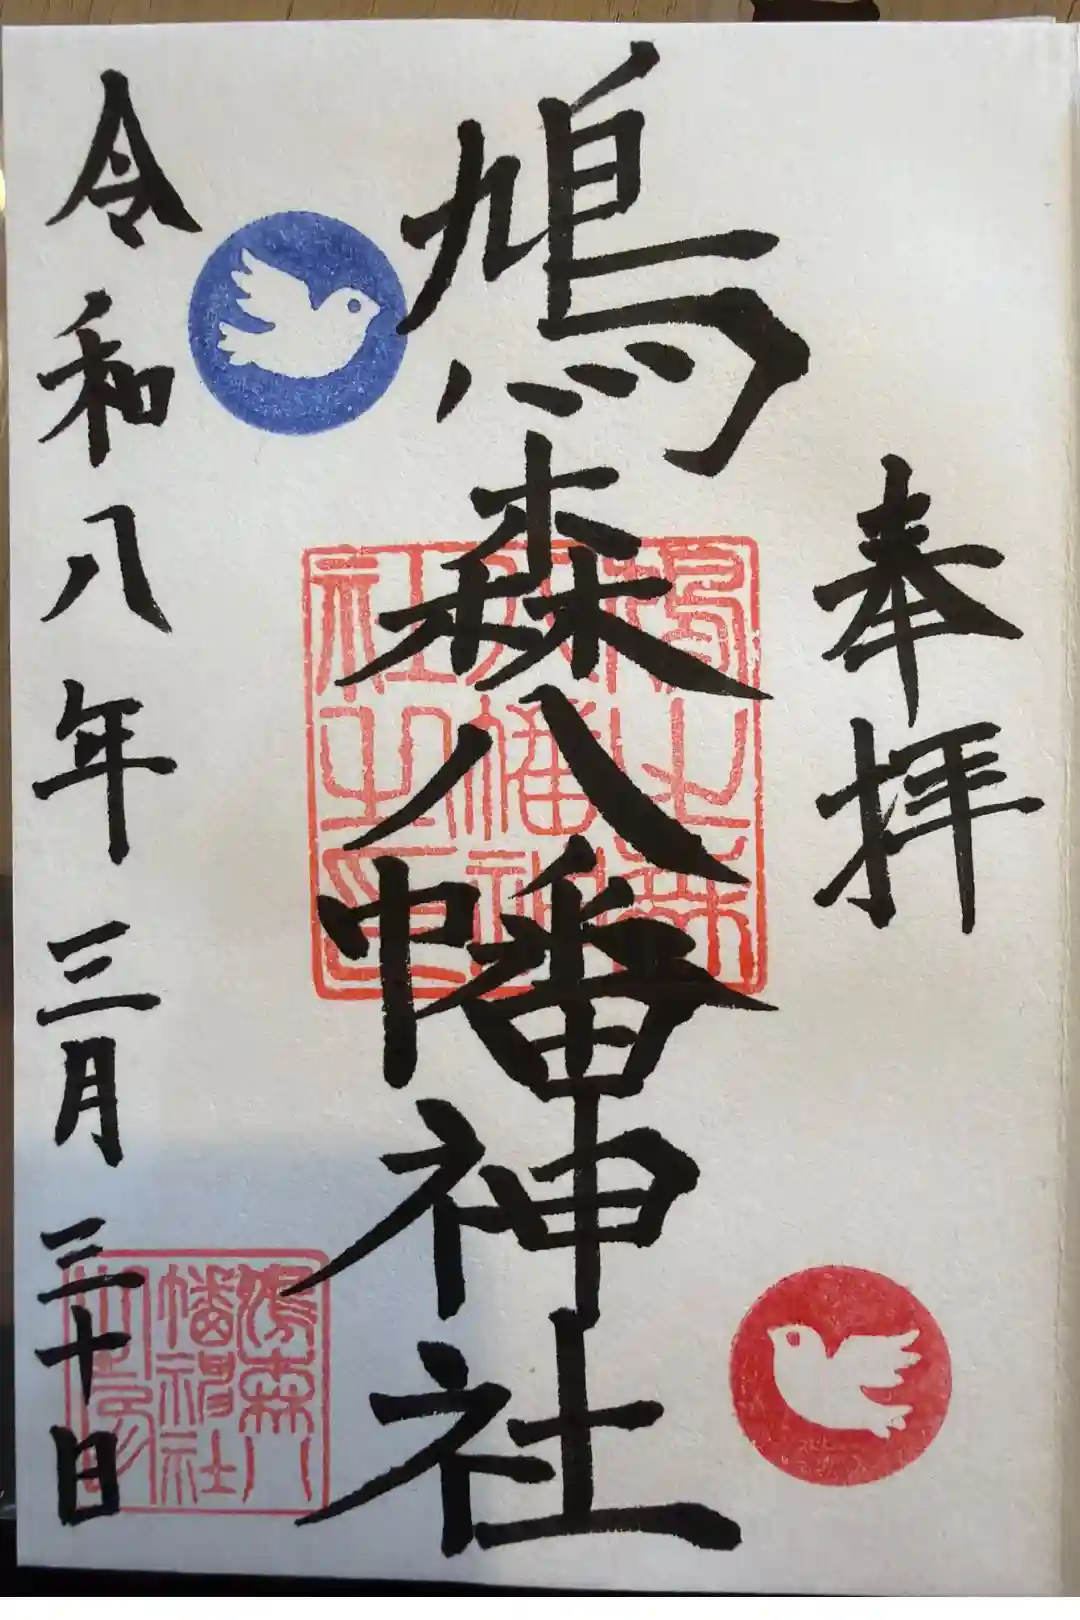 奉拝
鳩森八幡神社
令和八年三月三十日
鳩之森
八幡神
社之印
鳩森八
幡神社